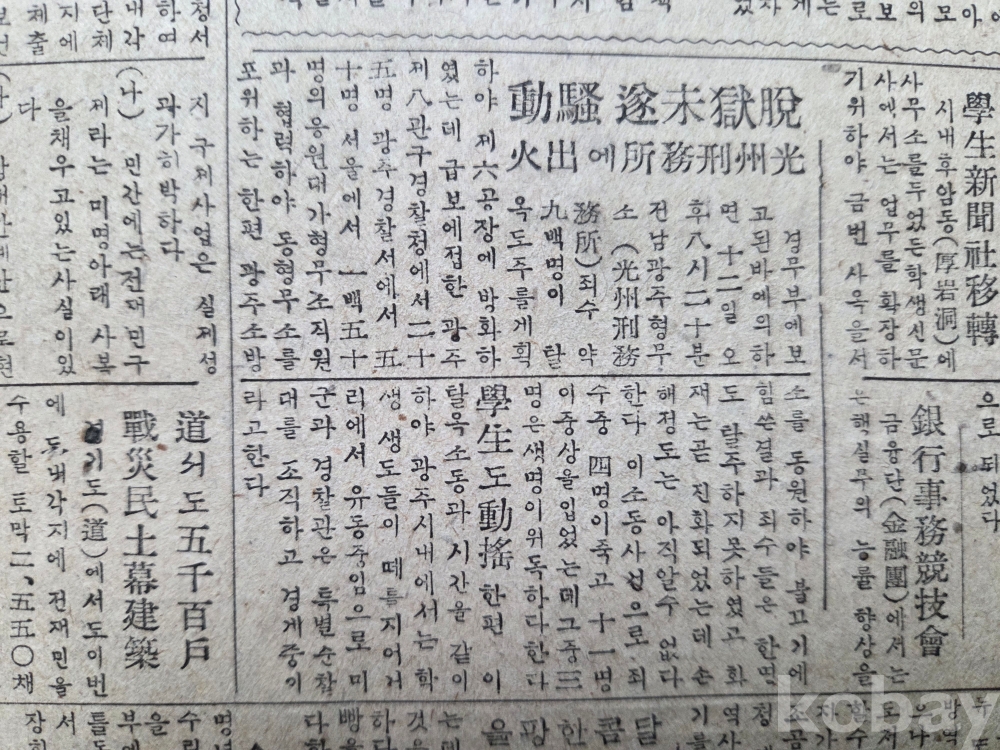 學生新聞社移轉
시내후암동(厚岩洞)에
사무소를두었든학생신문
사에서는 업무를 확장하
기위하야 금번 사옥을서
으로 되었다
銀行事務競技會
금융단(金融團)에서는
은행실무의 능률 향상을
脫獄未遂騷動
光州刑務所에出火
경무부에보
고된바에의하
면 十二일 오
후八시二十분
전남광주형무
소 (光州刑務
務所)죄수 약
九백명이 탈
옥도주를게획
하야 제六공장에 방화하
였는데 급보에접한 광주
제八관구경찰청에서二十
五명 광주경찰서에서 五
十명 서울에서 一백五十
명의응원대가형무소직원
과 협력하야 동형무소를
포위하는한편 광주소방
소를 동원하야 불끄기에
힘쓴결과 죄수들은 한명
도 탈주하지못하였고 화
재는곧 진화되었는데 손
해정도는 아직알수 없다
한다 이소동사건으로 죄
수중 四명이죽고 十一명
이중상을입었는데그중三
명은생명이위독하다한다
學生도動搖 한편 이
탈옥소동과 시간을 같이
하야 광주시내에서는 학
생 생도들이 떼를지어거
리에서 유동중임으로 미
군과 경찰관은 특별순찰
대를 조직하고 경게중이
라고한다
지구제사업은 실제성
과가히박하다
(나) 민간에는전재민구
제라는 미명아래 사복
을채우고있는사실이있
다
道서도五千百戶
戰災民土幕建築
경기도(道)에서도이번
에 도내각지에 전재민을
수용할 토막二、五五〇채
kcbay